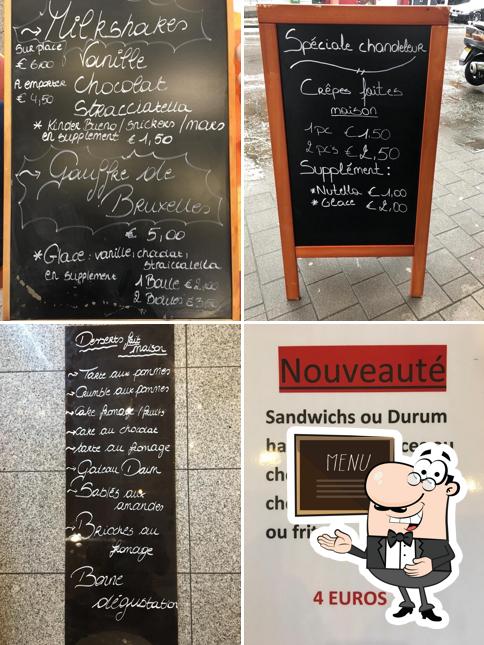 ~ Milkshakes
Sur place
€ 6,00
Vanille
A emporter
€ 4,50
Chocolat
Stracciatella
* Kinder Bueno / Snickers / Mars
en supplément € 1,50
~ Gauffre de
Bruxelles
€ 5,00
* Glace: vanille, chocolat,
en supplément
1 Boule
2 Boules
Spéciale chandeleur
Crêpes faites
maison
1 pc € 1,50
2 pcs € 2,50
Supplément :
* Nutella € 1,00
* Glace € 2,00
Desserts fait
maison
~ Tarte aux pommes
~ Crumble aux pommes
~ Cake fromage / fruits
~ Cake au chocolat
~ tarte au fromage
~ Gateau Daim
~ Sablés aux
amandes
~ Brioches au
fromage
Bonne
dégustation
Nouveauté
Sandwichs ou Durum
4 EUROS
MENU